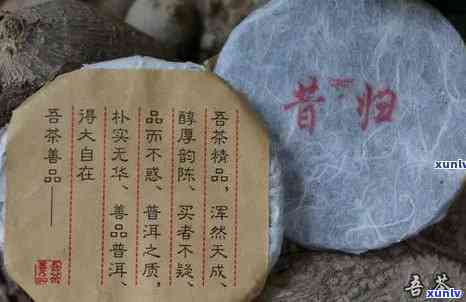 吾茶精品,浑然天成、
醇厚韵陈、买者不疑、
品而不惑、普洱之质,
朴实无华、善品普洱、
得大自在
吾茶善品——
昔归
xunlv
吾茶
xunlv